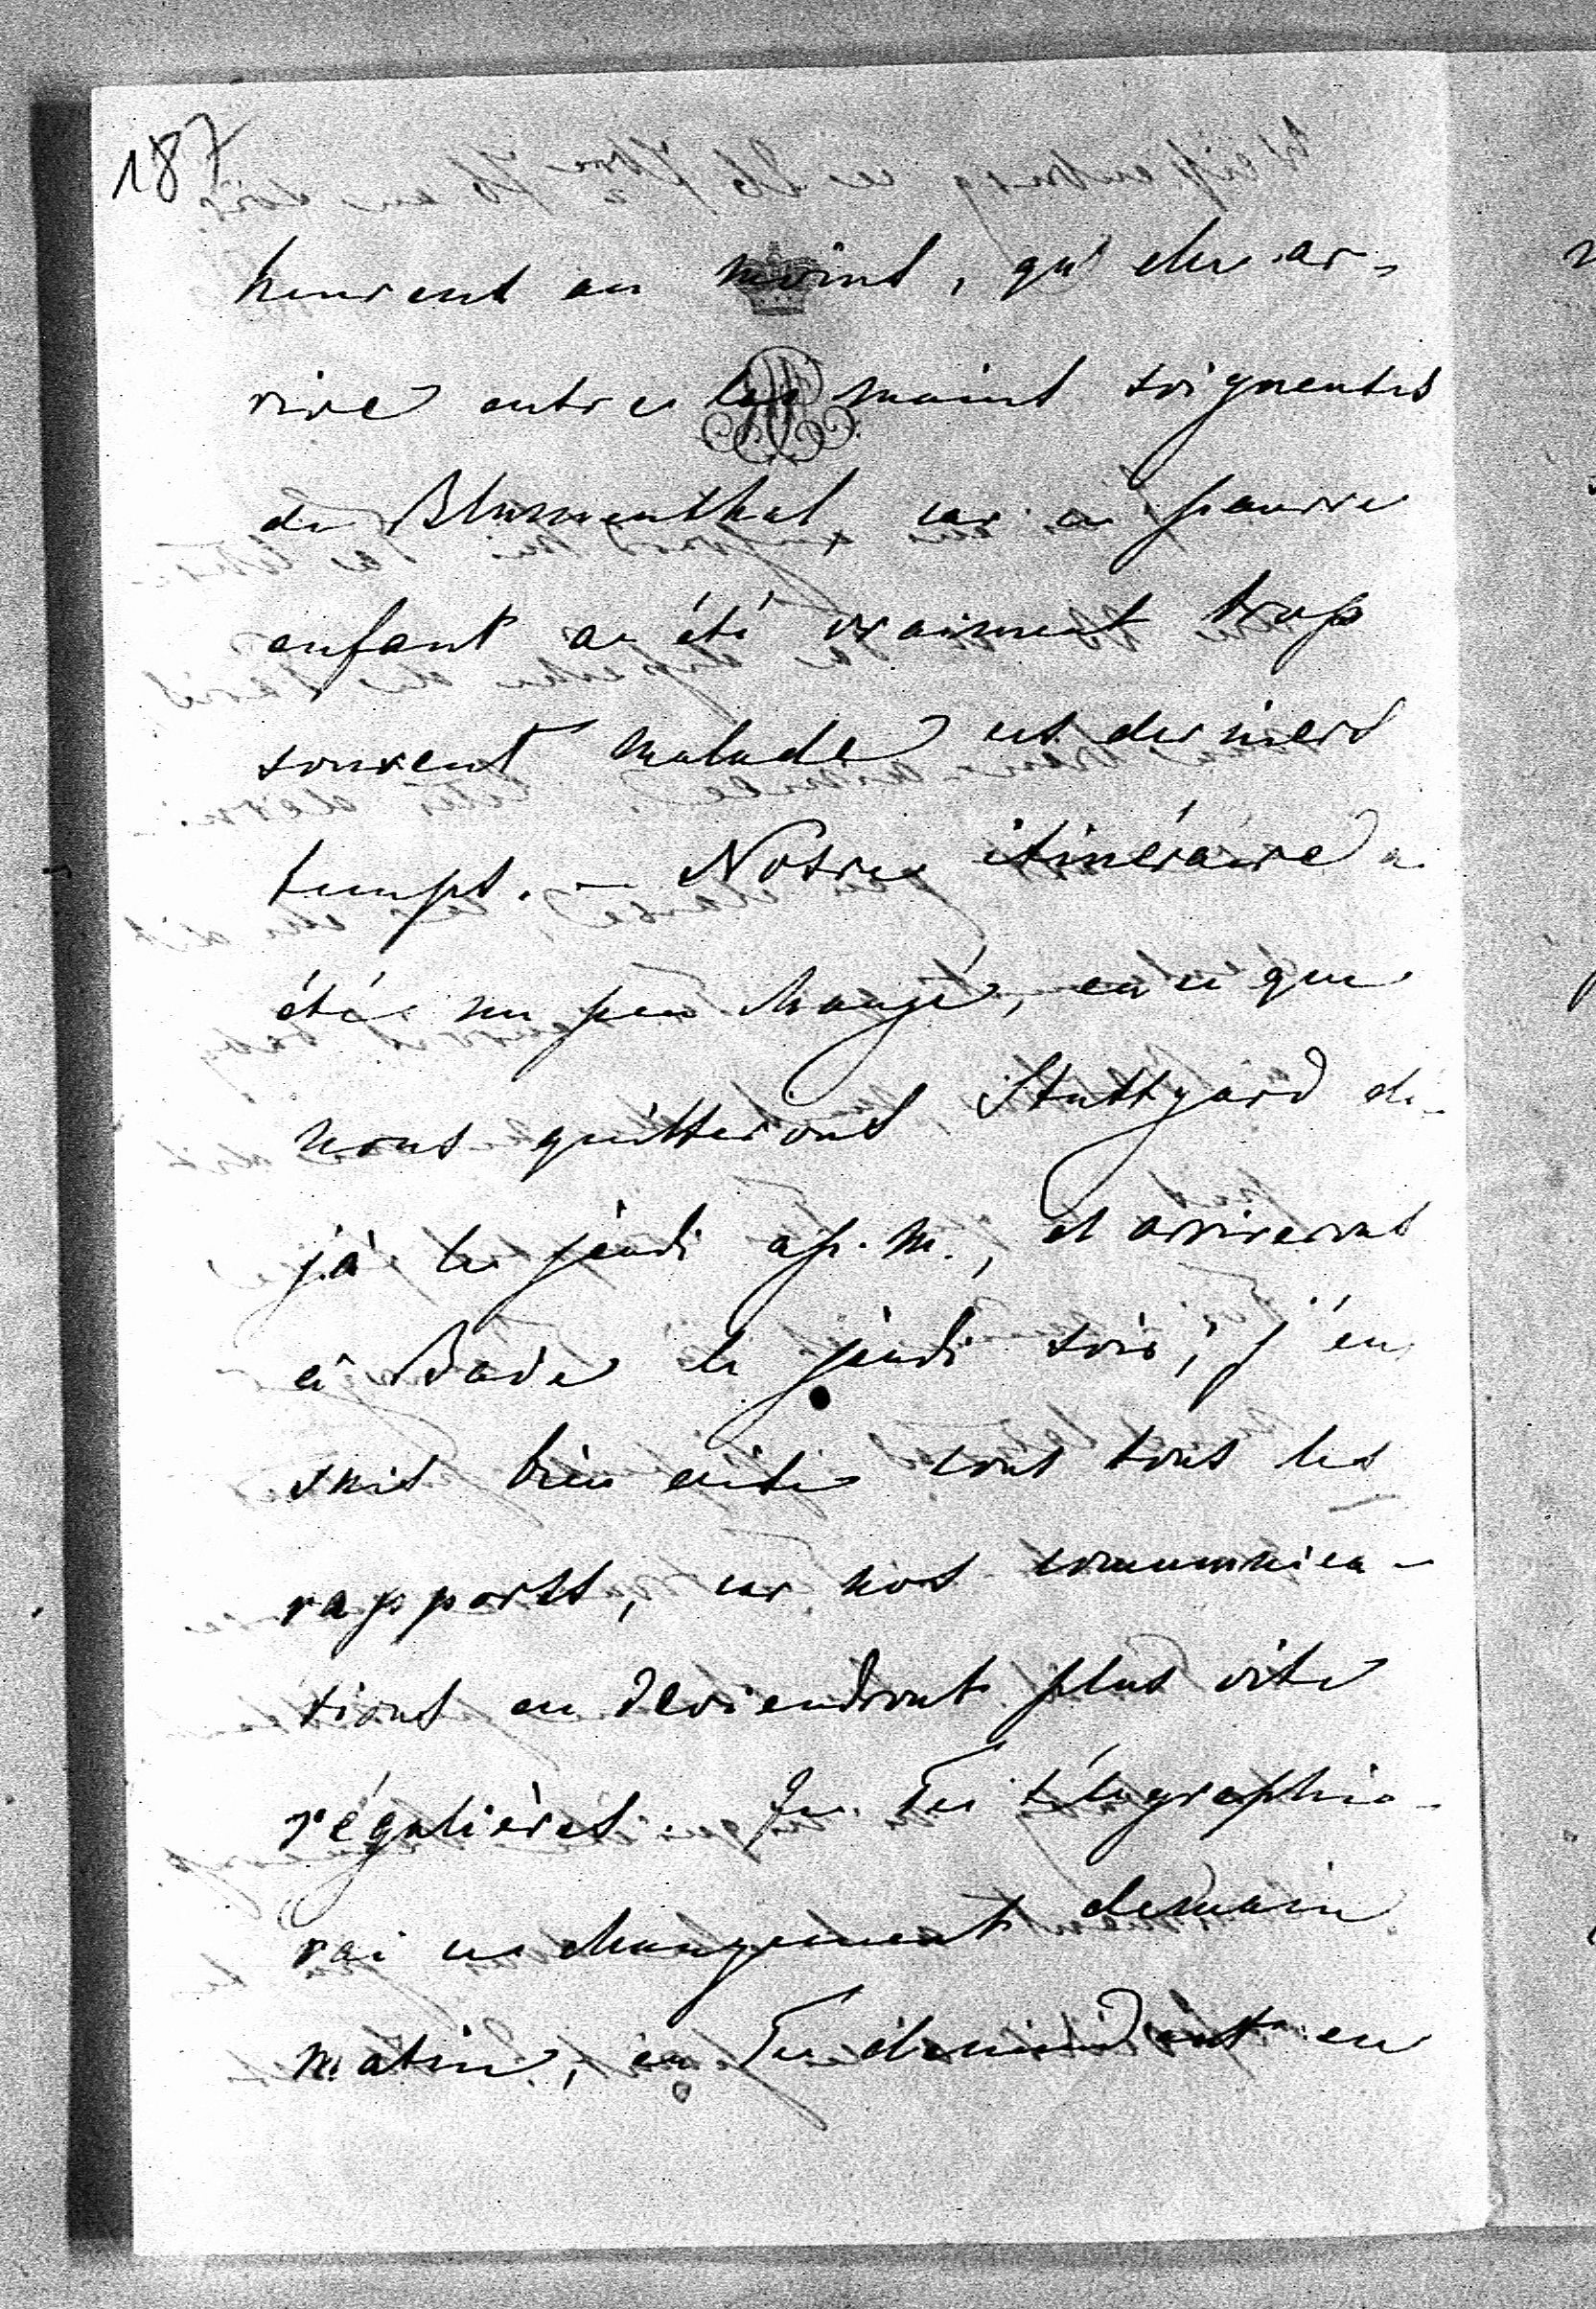 187
heurent au moins, qu'elle ar-
rive entre les mains soignentes
de Blumenthal car ce pauvre
enfant a été vraiment trop
souvent malade ces derniers
temps. — Notre itinéraire a
été un peu changé, en ce que
nous quitterons Stuttgard dé-
jà le jeudi ap. m., et arriverons
à Bade le jeudi soir; j'en
suis bien aise sous tous les
rapports, car nos communica-
tions en deviendront plus vite
régulières. Je Te télégraphie-
rai ce changement demain
matin, en Te demandant en